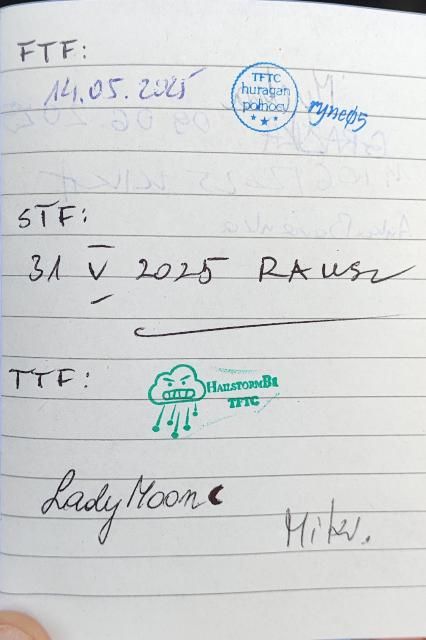 FTF:
14.05.2025
TFTC
huragan
północy
ryneφ5
STF:
31 V 2025 RAUSZ
TTF:
HAILSTORMB1
TFTC
LadyMoon